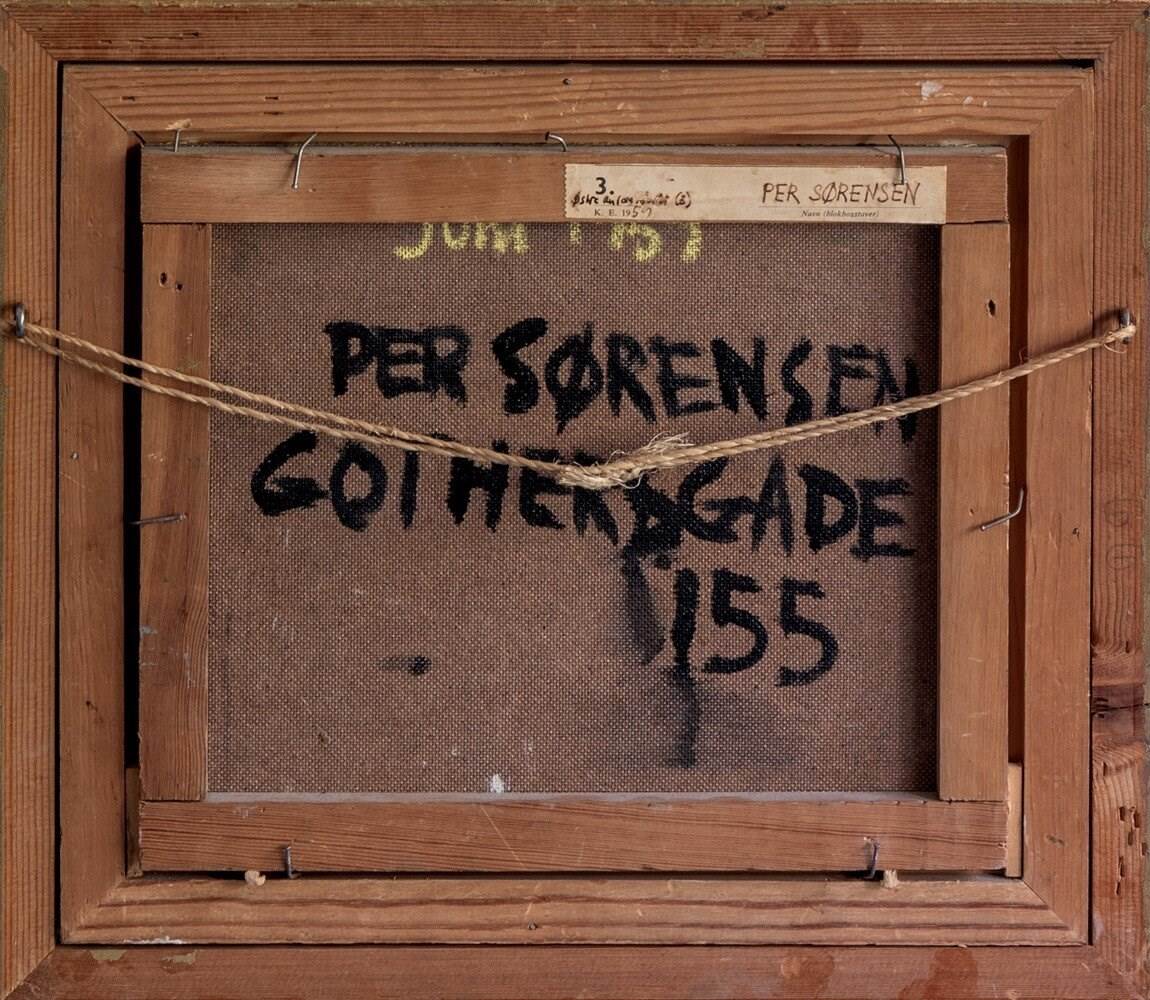 3.
PER SØRENSEN
K. E. 1957
Navn (blokbogstaver)
JUNI 1957
PER SØRENSEN
GOTHERSGADE
155